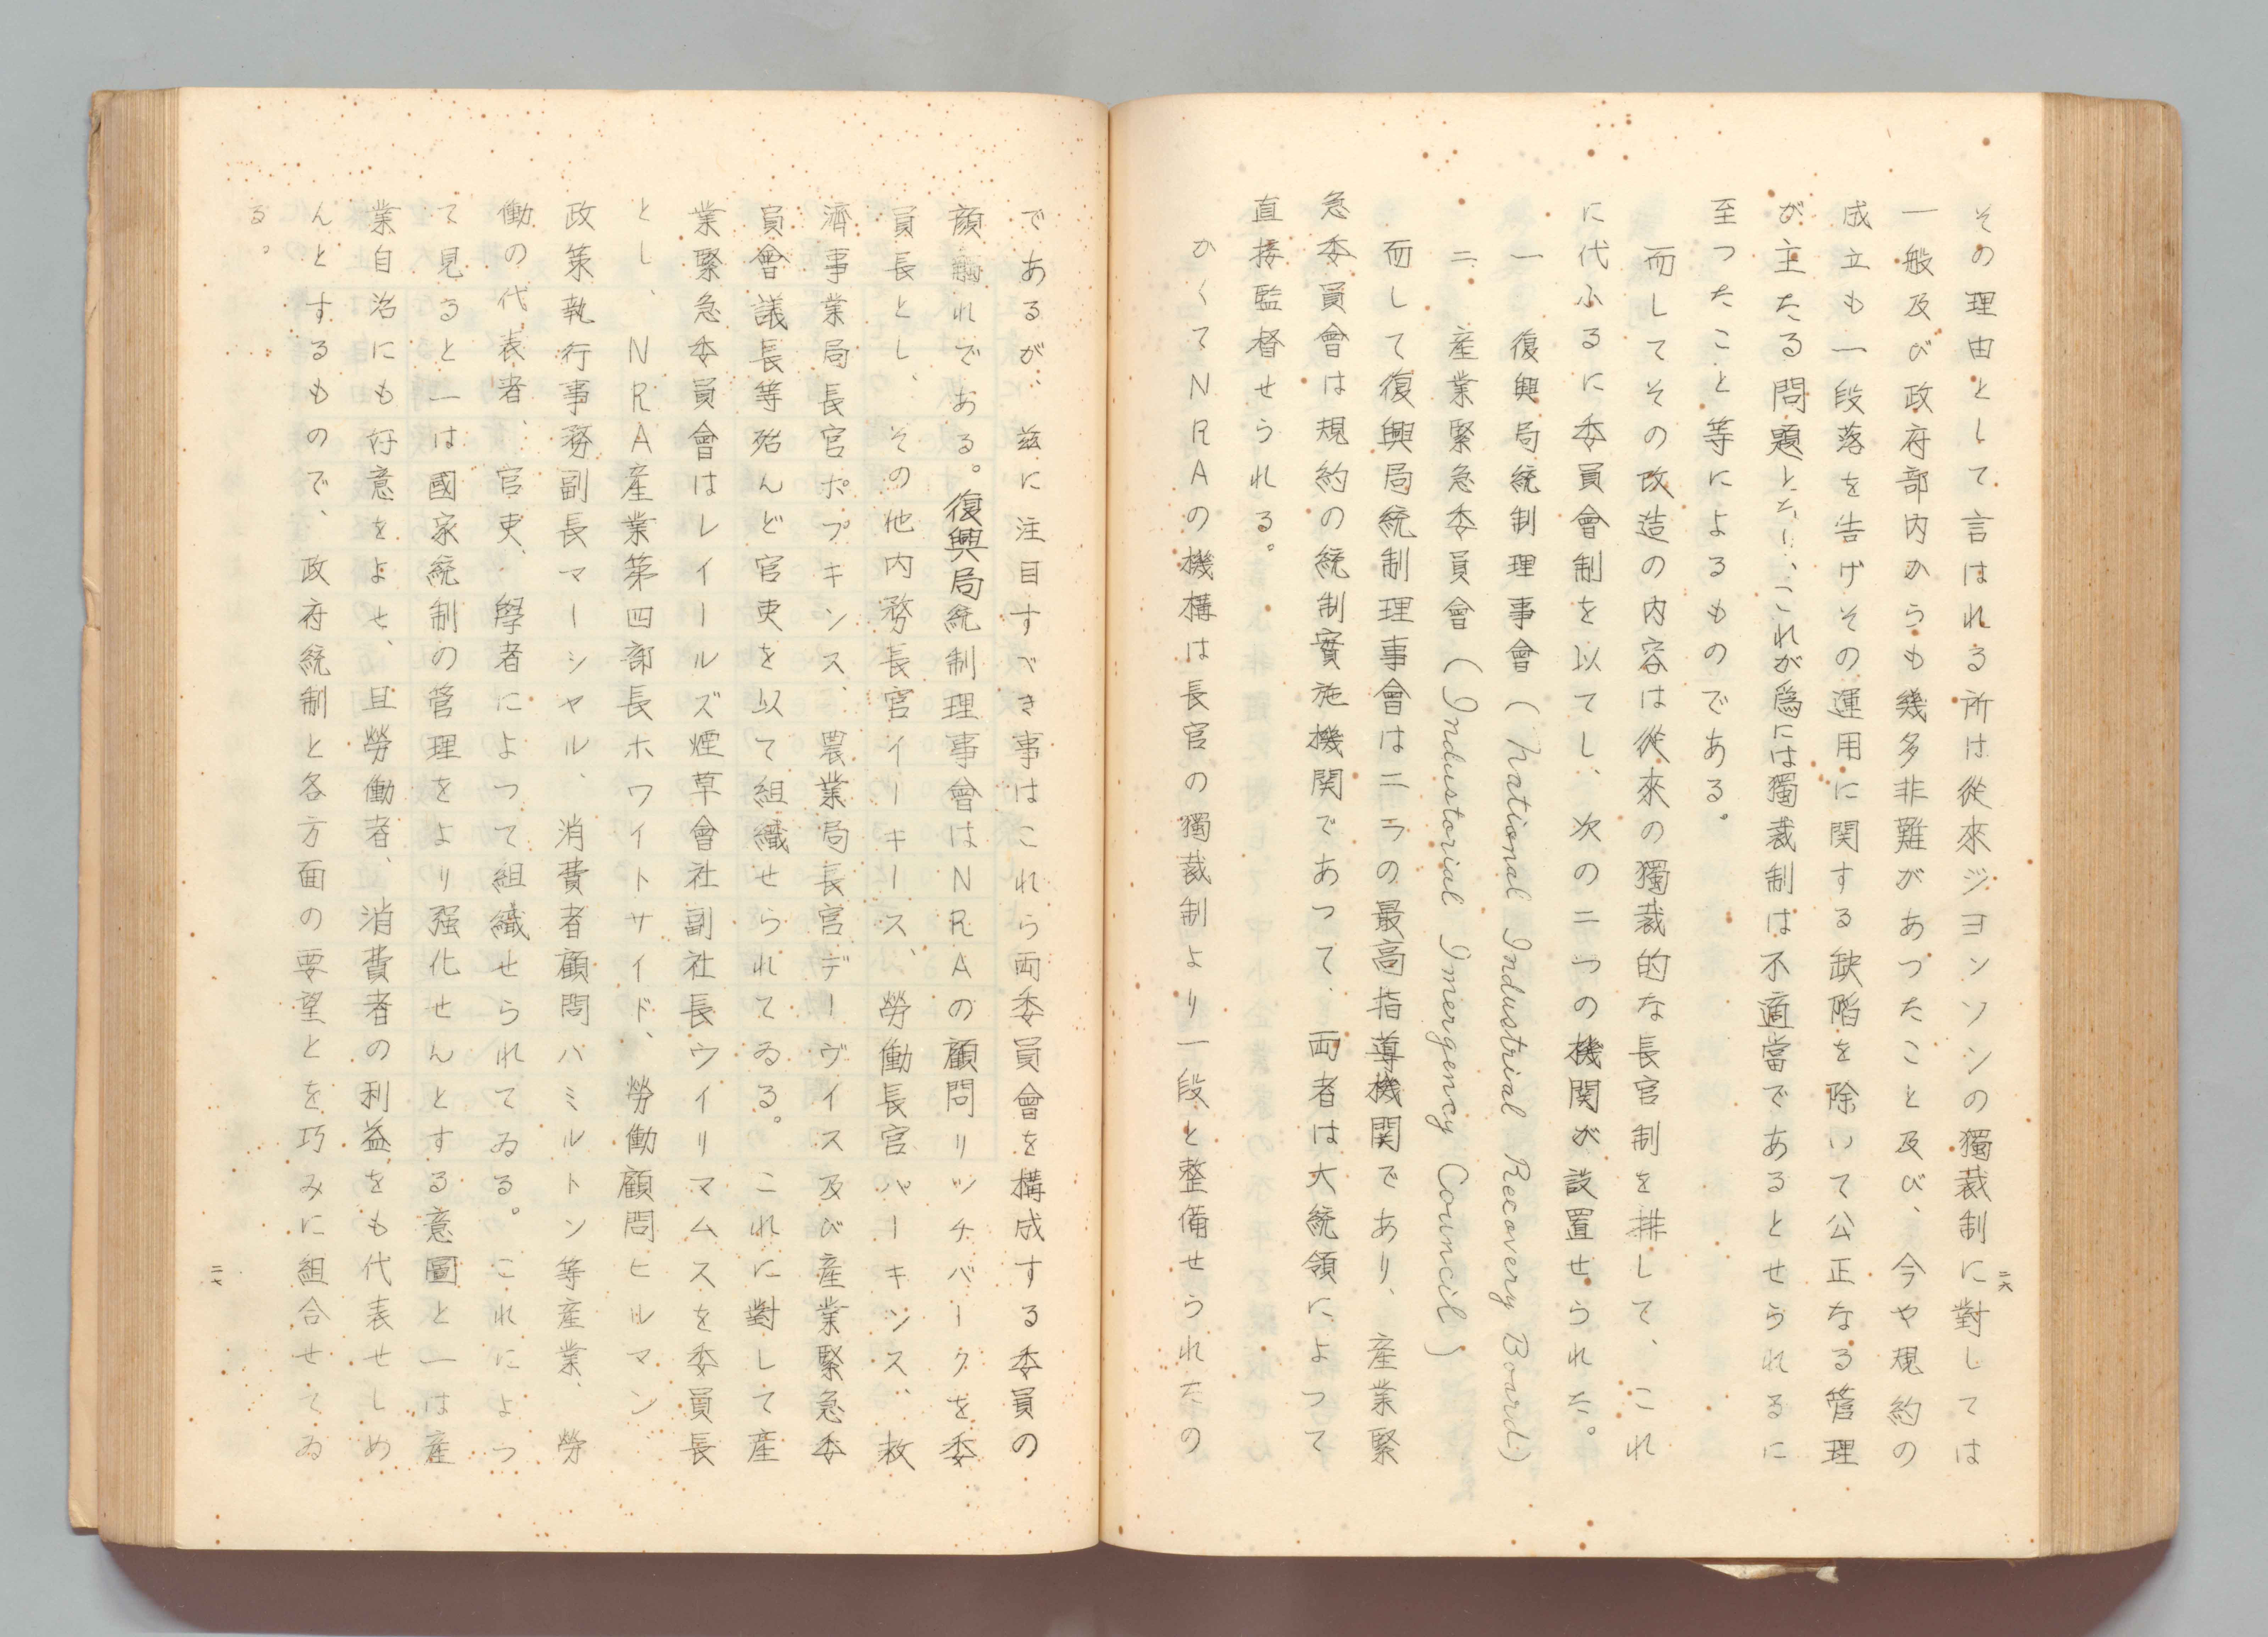 その理由として言はれる所は從來ジヨンソンの獨裁制に對しては
一般及び政府部内からも幾多非難があつたこと及び、今や規約の
成立も一段落を告げその運用に関する缺陷を除いて公正なる管理
が主たる問題となり、これが爲には獨裁制は不適當であるとせられるに
至つたこと等によるものである。
而してその改造の内容は從來の獨裁的な長官制を排して、これ
に代ふるに委員會制を以てし、次の二つの機関が設置せられた。
一 復興局統制理事會（National Industrial Recovery Board）
二、産業緊急委員會（Industorial Imergency Council）
而して復興局統制理事會は二ラの最高指導機関であり、産業緊
急委員會は規約の統制實施機関であつて、両者は大統領によつて
直接監督せられる。
かくてNRAの機構は長官の獨裁制より一段と整備せられたの
二六
であるが、茲に注目すべき事はこれら両委員會を構成する委員の
顔觸れである。復興局統制理事會はNRAの顧問リツチバーグを委
員長とし、その他内務長官イーキース、勞働長官パーキンス、救
濟事業局長官ホプキンス、農業局長官デーヴイス及び産業緊急委
員會議長等殆んど官吏を以て組織せられてゐる。これに對して産
業緊急委員會はレイールズ煙草會社副社長ウイリアムスを委員長
とし、NRA産業第四部長ホワイトサイド、勞働顧問ヒルマン
政策執行事務副長マーシヤル、消費者顧問ハミルトン等産業、勞
働の代表者、官吏、學者によつて組織せられてゐる。これによつ
て見ると一は國家統制の管理をより强化せんとする意圖と一は産
業自治にも好意をよせ、且勞働者、消費者の利益をも代表せしめ
んとするもので、政府統制と各方面の要望とを巧みに組合せてゐ
る。